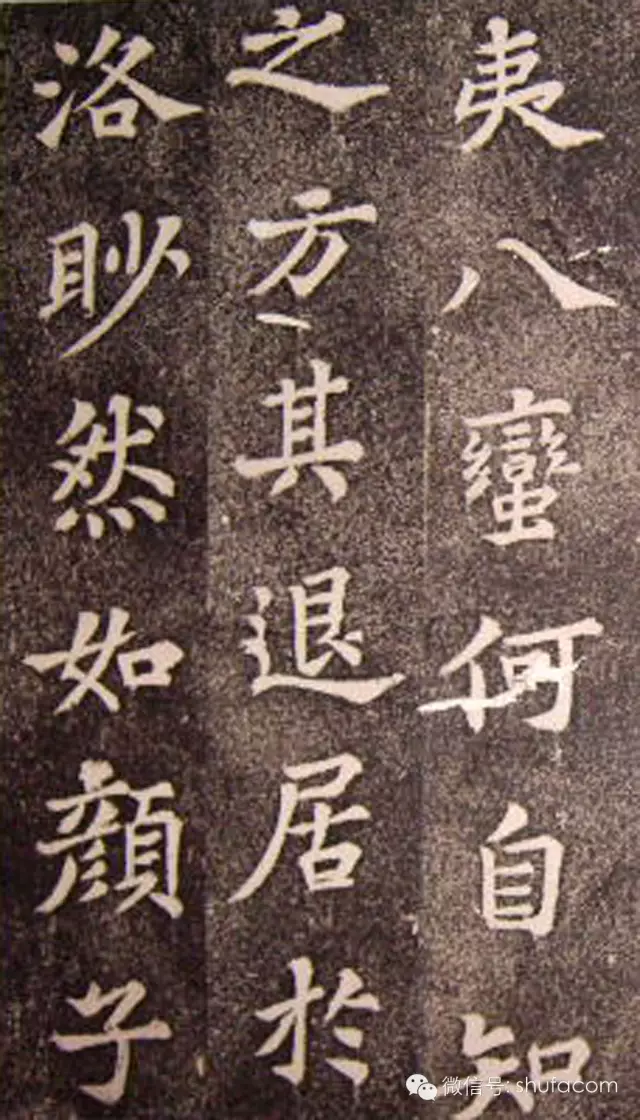 夷八蠻何自知
之方其退居於
洛眇然如顏子
微信号: shufacom